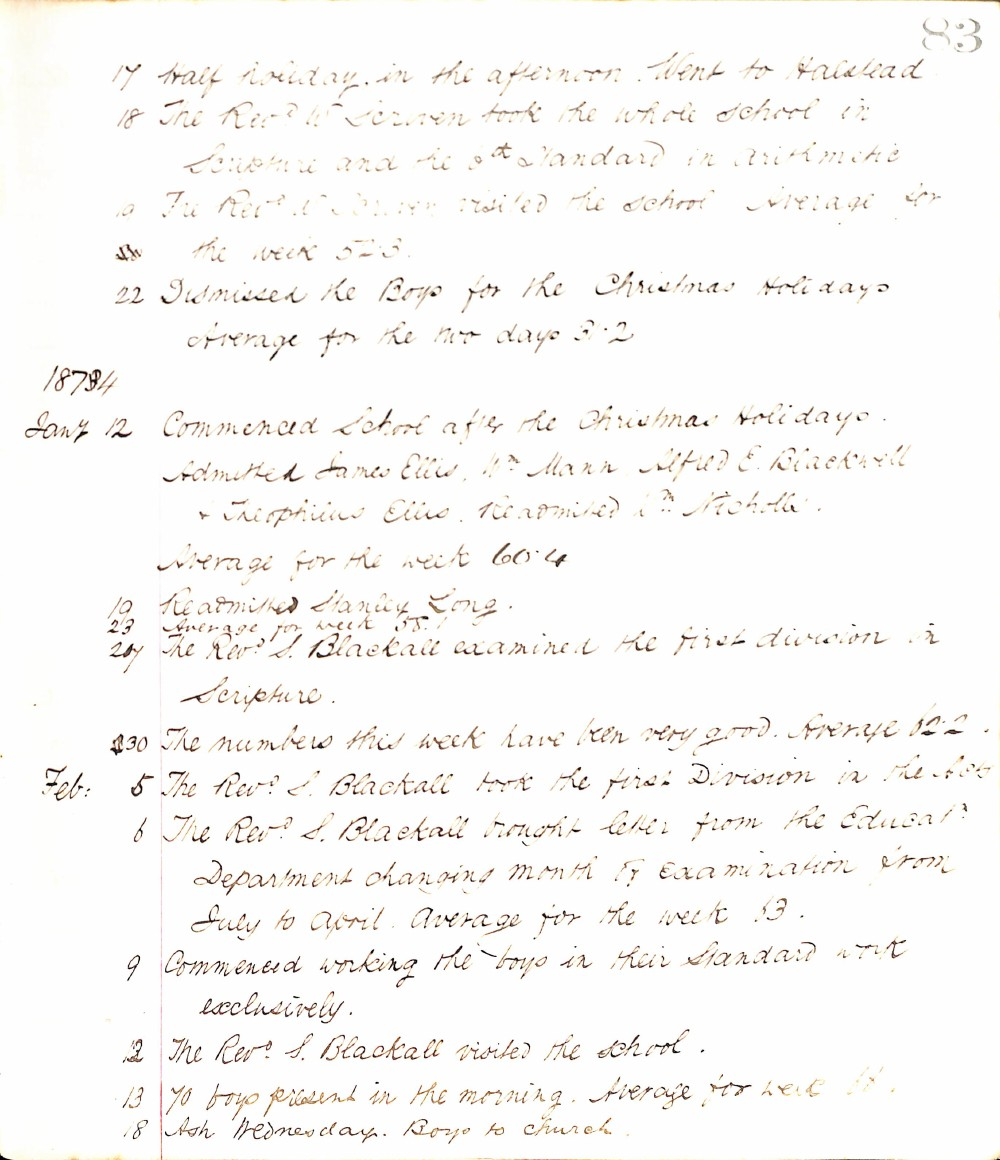 83
17 Half holiday in the afternoon. Went to Halstead
18 The Revd Wm Scriven took the whole school in
Scripture and the 6th Standard in Arithmetic
19 The Revd W Scriven visited the school Average for
the week 52.3.
22 Dismissed the Boys for the Christmas Holidays
Average for the two days 31.2
1874
Jany 12 Commenced School after the Christmas Holidays.
Admitted James Ellis, Wm Mann Alfred E. Blackwell
+ Theophilus Ellis. Readmitted Wm Nicholls.
Average for the week 60.4
19 Readmitted Stanley Long.
23 Average for week 58.1
27 The Revd S. Blackall examined the first division in
Scripture.
30 The numbers this week have been very good. Average 62.2.
Feb: 5 The Revd S. Blackall took the first Division in the Acts
6 The Revd S. Blackall brought letter from the Educatn
Department changing month of Examination from
July to April. Average for the week 63.
9 Commenced working the boys in their Standard work
exclusively.
12 The Revd S. Blackall visited the school.
13 70 boys present in the morning. Average for week
18 Ash Wednesday. Boys to church.